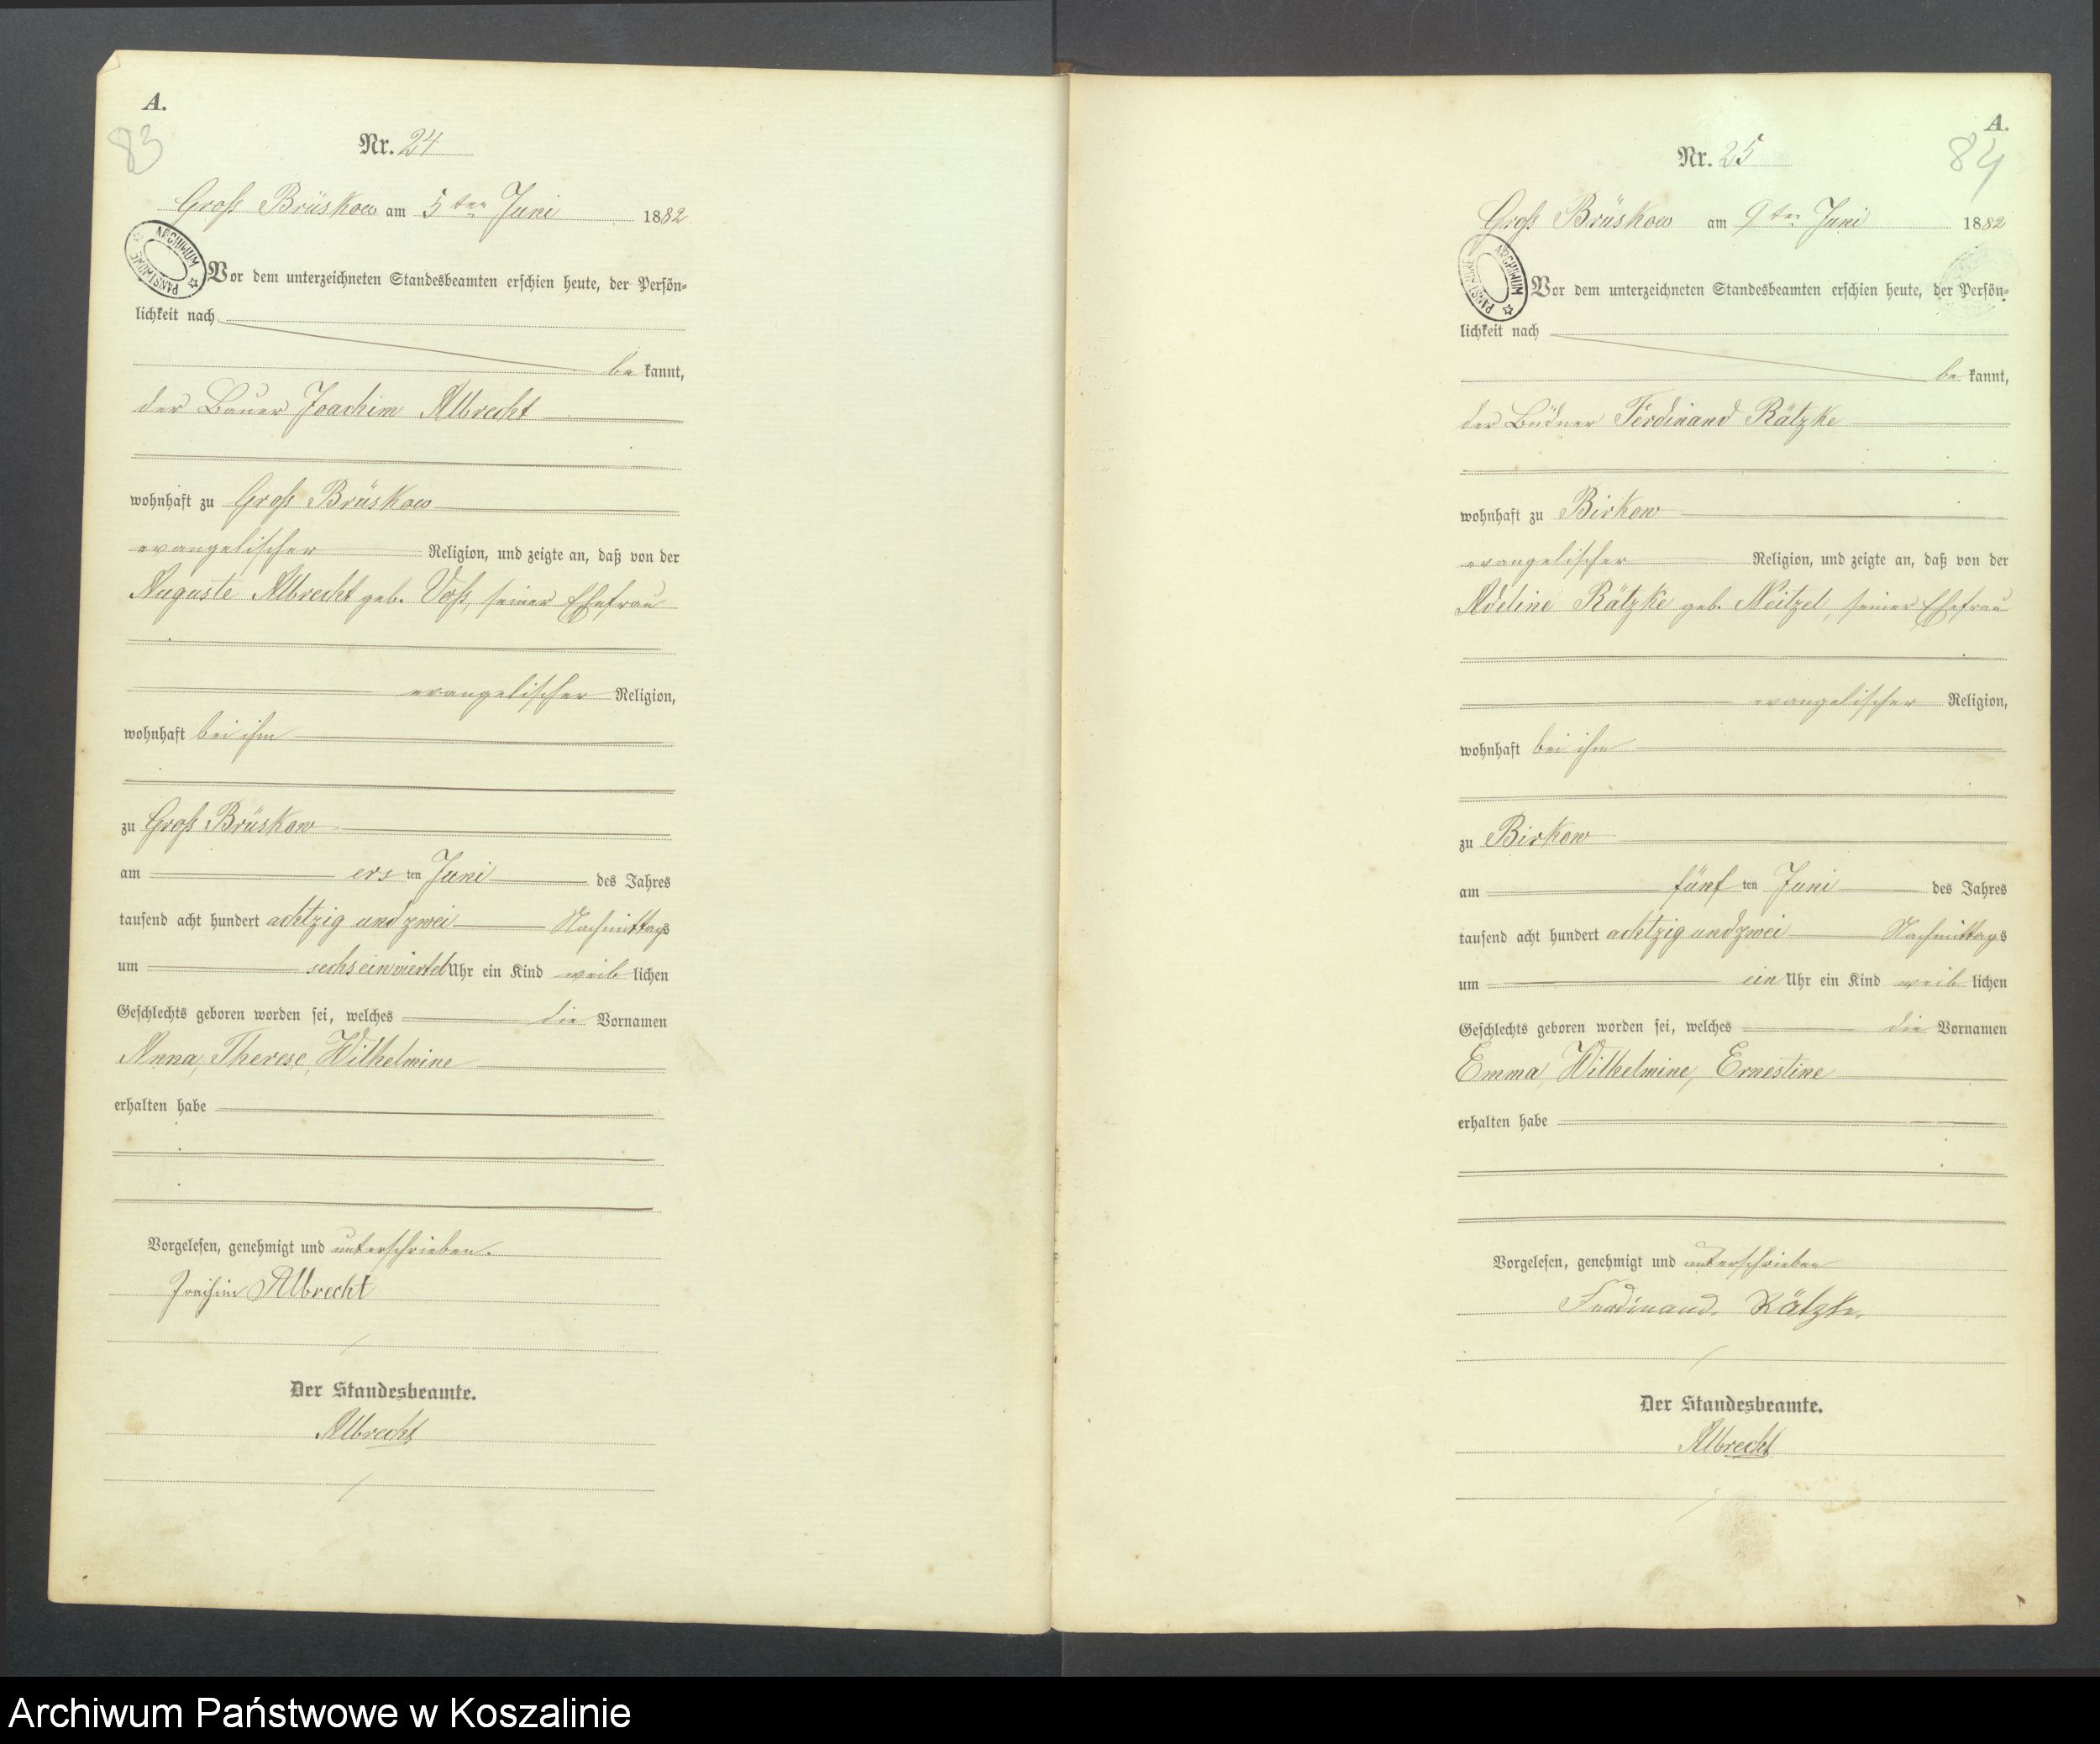 A.
83
Nr. 24
Groß Brüskow am 5ten Juni 1882
ARCHIWUM PAŃSTWOWE
Vor dem unterzeichneten Standesbeamten erschien heute, der Persön-
lichkeit nach
bekannt,
der Bauer Joachim Albrecht
wohnhaft zu Groß Brüskow
evangelischer Religion, und zeigte an, daß von der
Auguste Albrecht geb. Voß, seiner Ehefrau
evangelischer Religion,
wohnhaft bei ihm
zu Groß Brüskow
am ersten Juni des Jahres
tausend acht hundert achtzig und zwei Nachmittags
um sechs ein viertel Uhr ein Kind weiblichen
Geschlechts geboren worden sei, welches die Vornamen
Anna, Therese, Wilhelmine
erhalten habe
Vorgelesen, genehmigt und unterschrieben.
Joachim Albrecht
Der Standesbeamte.
Albrecht
A.
84
Nr. 25
Groß Brüskow am 9ten Juni 1882
ARCHIWUM PAŃSTWOWE
Vor dem unterzeichneten Standesbeamten erschien heute, der Persön-
lichkeit nach
bekannt,
der Büdner Ferdinand Rätzke
wohnhaft zu Birkow
evangelischer Religion, und zeigte an, daß von der
Adeline Rätzke geb. Neitzel, seiner Ehefrau
evangelischer Religion,
wohnhaft bei ihm
zu Birkow
am fünften Juni des Jahres
tausend acht hundert achtzig und zwei Nachmittags
um ein Uhr ein Kind weiblichen
Geschlechts geboren worden sei, welches die Vornamen
Emma, Wilhelmine, Ernestine
erhalten habe
Vorgelesen, genehmigt und unterschrieben
Ferdinand Rätzke.
Der Standesbeamte.
Albrecht
Archiwum Państwowe w Koszalinie